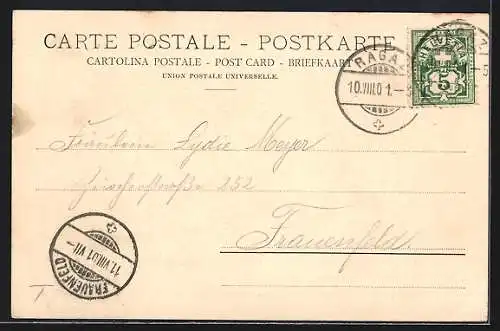 CARTE POSTALE - POSTKARTE
CARTOLINA POSTALE - POST CARD - BRIEFKAART
UNION POSTALE UNIVERSELLE.
RAGAZ
10.VIII.01.-
HELVETIA
5
Fräulein Lydie Meyer
252
Frauenfeld.
11.VIII.01.VII-
FRAUENFELD